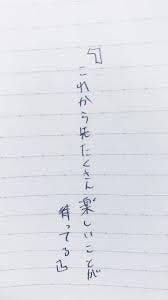 『これから先たくさん楽しいことが
待ってる』